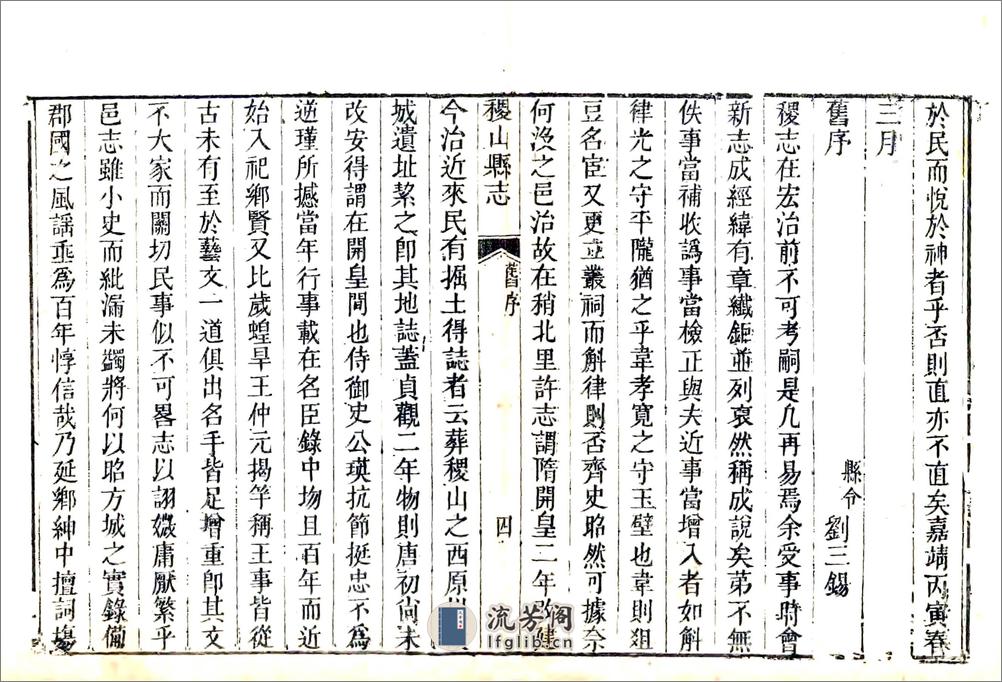 於民而悅於神者乎否則直亦不直矣嘉靖丙寅春
三月
舊序
縣令 劉三錫
稷志在宏治前不可考嗣是凡再易焉余受事時會
新志成經緯有章纖鉅並列裒然稱成說矣第不無
佚事當補收譌事當檢正與夫近事當增入者如斛
律光之守平隴猶之乎韋孝寬之守玉壁也韋則俎
豆名宦又更立叢祠而斛律則否齊史昭然可據奈
何沒之邑治故在稍北里許志謂隋開皇二年改建
稷山縣志
舊序
四
今治近來民有掘土得誌者云葬稷山之西原
城遺址絜之卽其地誌蓋貞觀二年物則唐初尙未
改安得謂在開皇間也侍御史公瑛抗節挺忠不爲
逆瑾所撼當年行事載在名臣錄中歿且百年而近
始入祀鄉賢又比歲蝗旱王仲元揭竿稱王事皆從
古未有至於藝文一道俱出名手皆足增重卽其文
不大家而關切民事似不可畧志以詡媺庸厭繁乎
邑志雖小史而紕漏未蠲將何以昭方城之實錄備
郡國之風謡垂爲百年惇信哉乃延鄉紳中擅詞塲
流芳阁
lfglib.cn